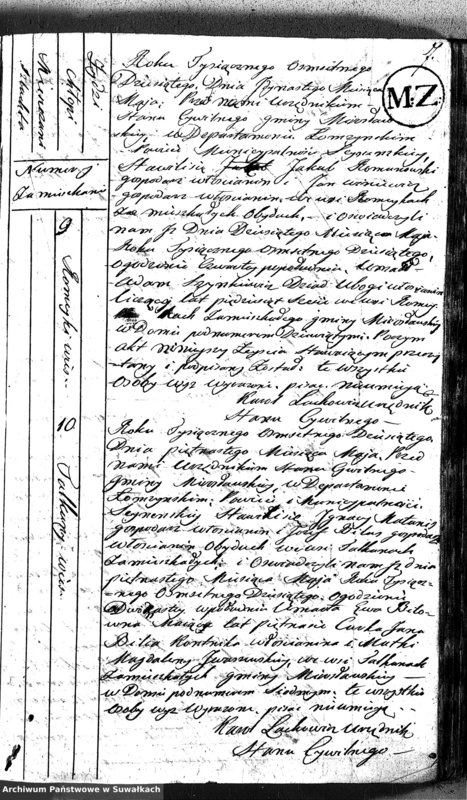 17
M.Z.
Żydzi
Chłopi
Mieszczanie
Szlachta
Numer
Zamieszkani
9
Romeyki wieś
10
Jałkany wieś
Roku Tysiącznego Osmsetnego
Dziesiątego, Dnia Miesiąca
Maja, Przed nami Urzędnikiem
Stanu Cywilnego gminy Mirosław
skiey w Departamencie Łomżyńskim
Powiecie Municypalności Seynenskiey
Stawiliście Jakub Romanowski
gospodarz włościanin i Jan
gospodarz włościanin we wsi Romeykach
Zamieszkałych Obydwuch, i oświadczyli
nam iż Dnia Dziesiątego Miesiąca Maja
Roku Tysiącznego Osmsetnego Dziesiątego,
o godzinie Czwartey popołudniu, Umarł
Adam Szynkiewicz Dziad Ubogi włościanin
liczący lat pięćdziesiąt Sześć we wsi Romey
kach Zamieszkałego gminy Mirosławskiey
w Domu pod numerem Dziewiątym. Poczym
akt ninieyszy Zeyścia Stawaiącym przeczy
tany i podpisany Został te wszystkie
Osoby wyż wyrażone pisać nieumieją
Karol Lachowicz Urzędnik
Stanu Cywilnego
Roku Tysiącznego Osmsetnego Dziesiątego
Dnia piętnastego Miesiąca Maja, Przed
nami Urzędnikiem Stanu Cywilnego
gminy Mirosławskiey w Departamencie
Łomżyńskim, Powiecie i Municypalności
Seynenskiey Stawiliście Ignacy
gospodarz włościanin i Józef Bilas gospodarz
włościanin Obydwuch we wsi Jałkanach
Zamieszkałych i Oświadczyli nam iż dnia
piętnastego Miesiąca Maja Roku Tysiącz
nego Osmsetnego Dziesiątego, o godzinie
Dwunastey w południe Umarła Ewa Bilo
wna Mająca lat piętnaście Curka Jana
Bila Rolnika włościanina i Matki
Magdaleny we wsi Jałkanach
Zamieszkałych gminy Mirosławskiey
w Domu pod numerem Siódmym, te wszystkie
Osoby wyż Wyrażone, pisać nieumieją
Karol Lachowicz Urzędnik
Stanu Cywilnego
Archiwum Państwowe w Suwałkach